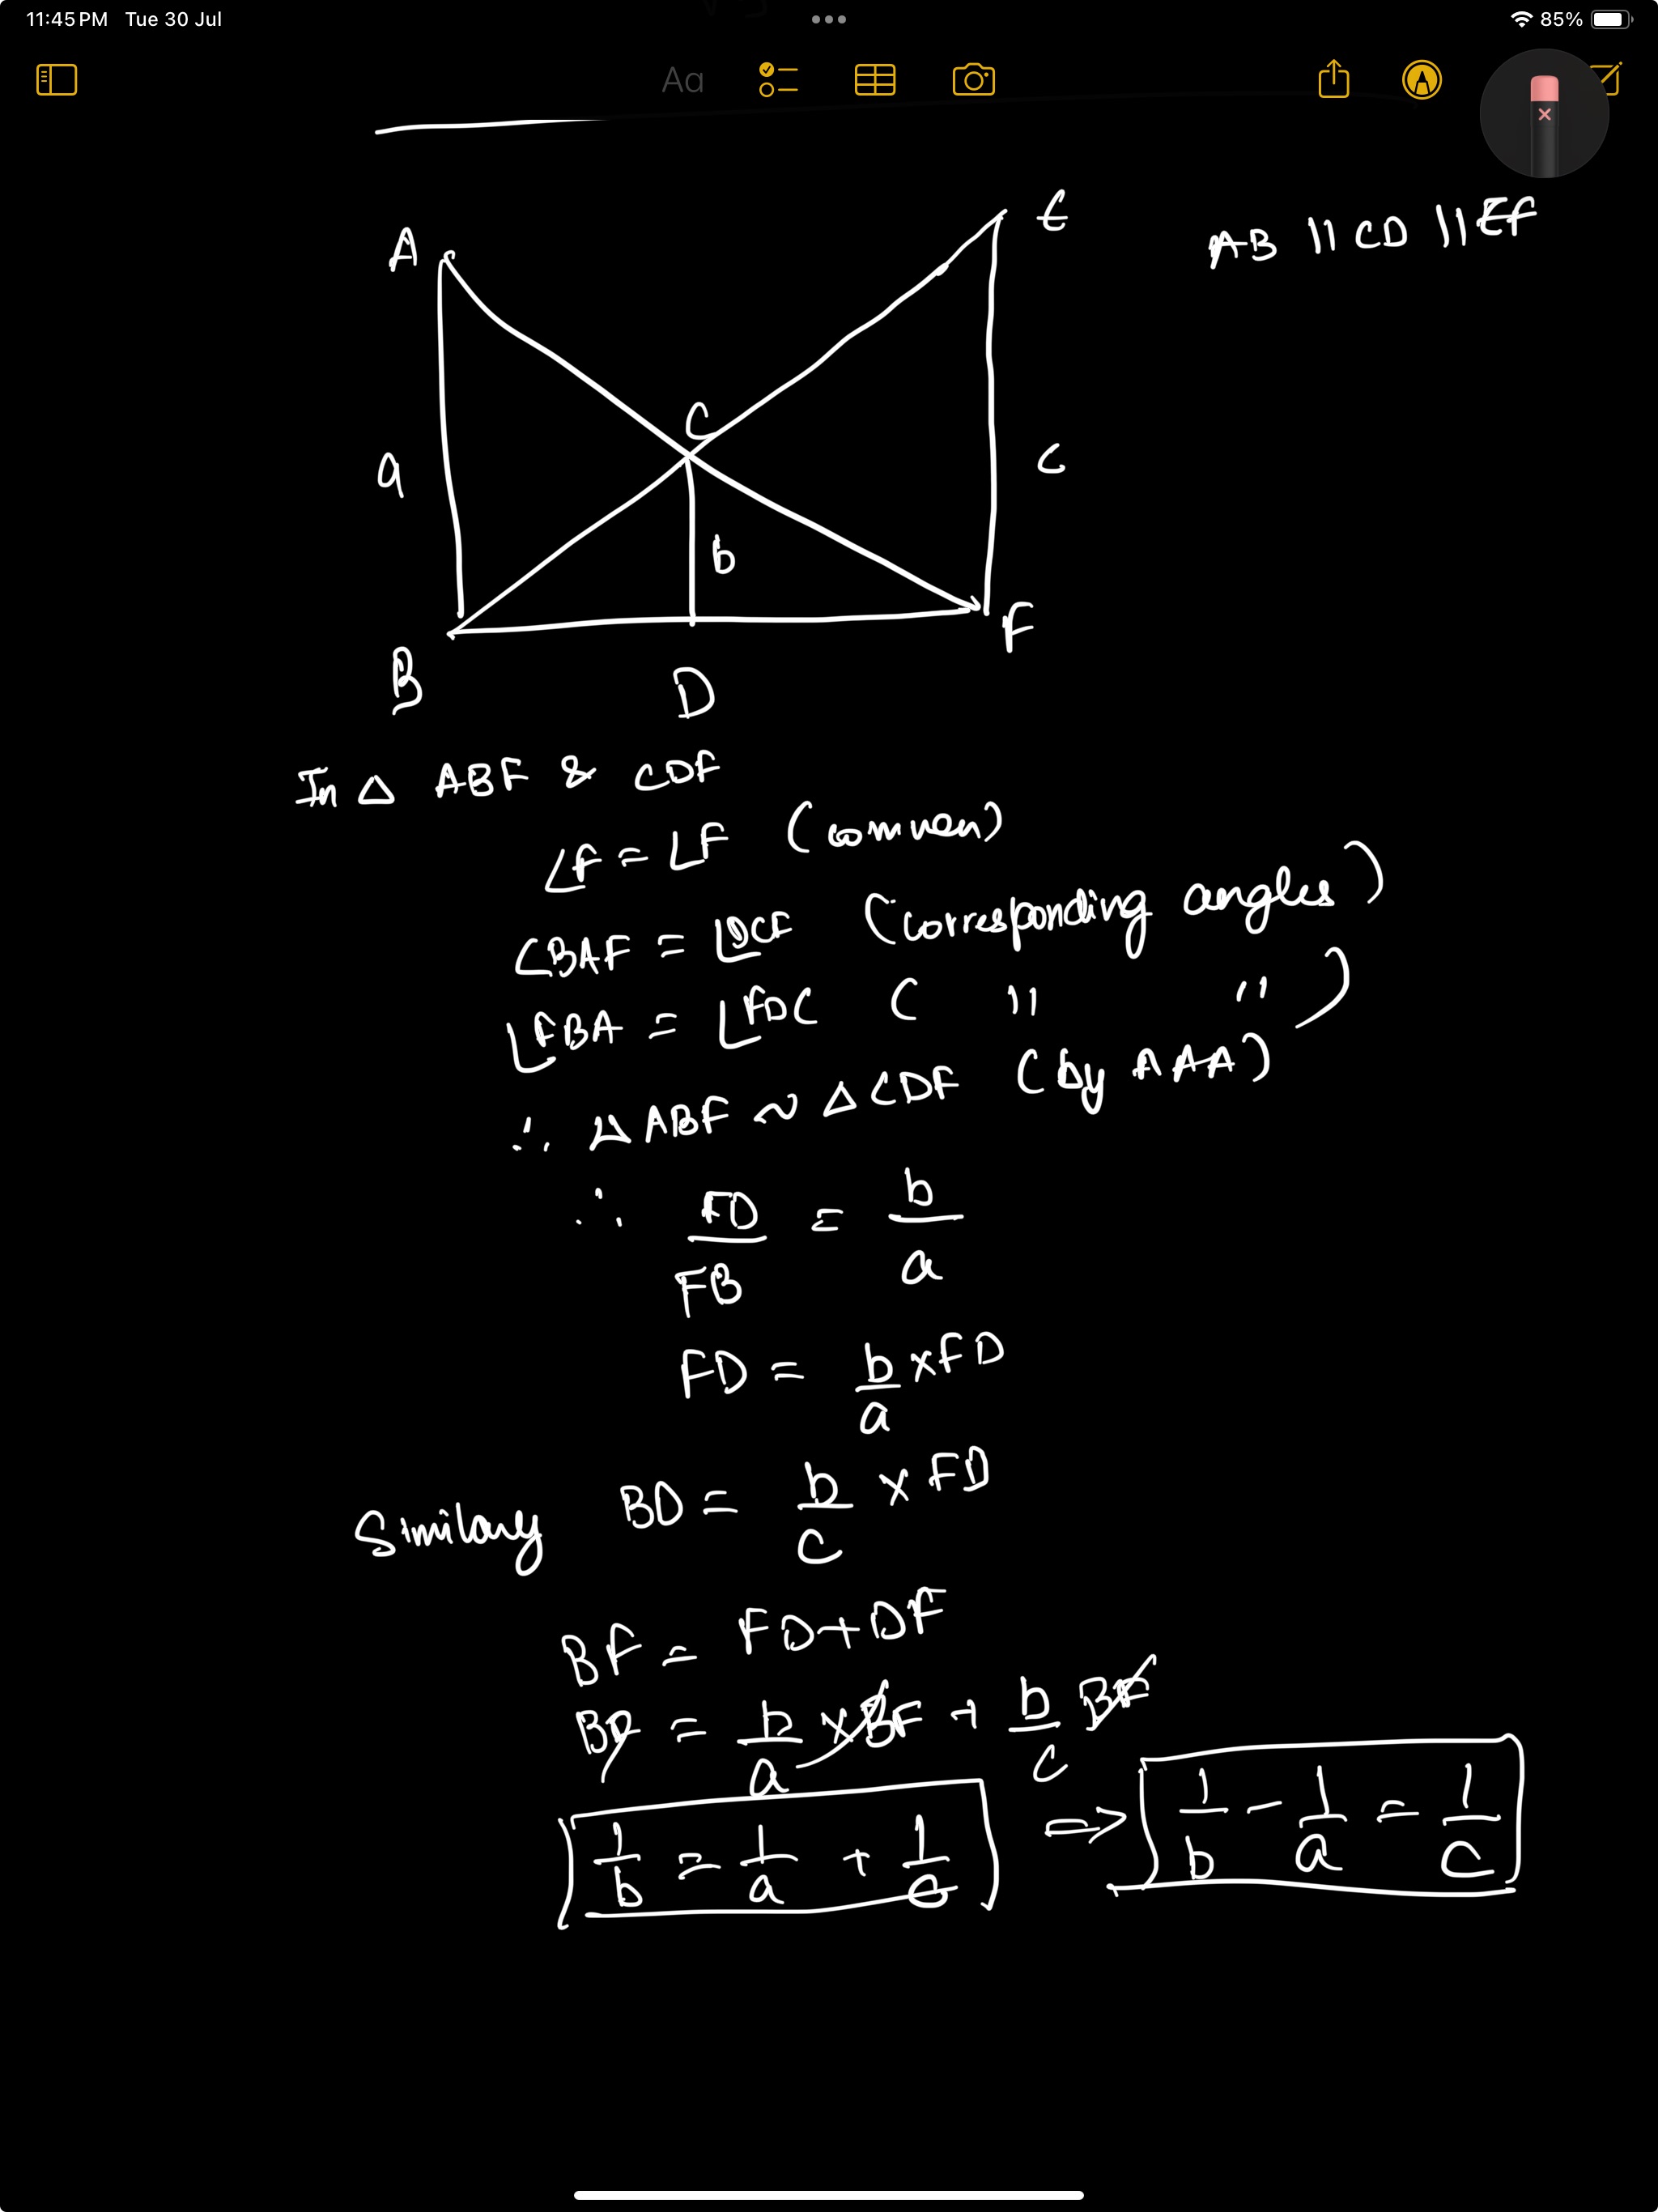 11:45 PM Tue 30 Jul
85%
Aa
E
A
AB || CD || EF
C
a
c
b
F
B
D
In △ ABF & CDF
∠F = ∠F (common)
∠BAF = ∠DCF (corresponding angles)
∠FBA = ∠FDC ( " " )
∴ △ABF ~ △CDF (by AAA)
∴ FD/FB = b/a
FD = b/a × FD
Similary BD = b/c × FD
BF = FD + DF
BF = b/a × BF + b/c BF
1/b = 1/a + 1/c ⇒ 1/b - 1/a = 1/c